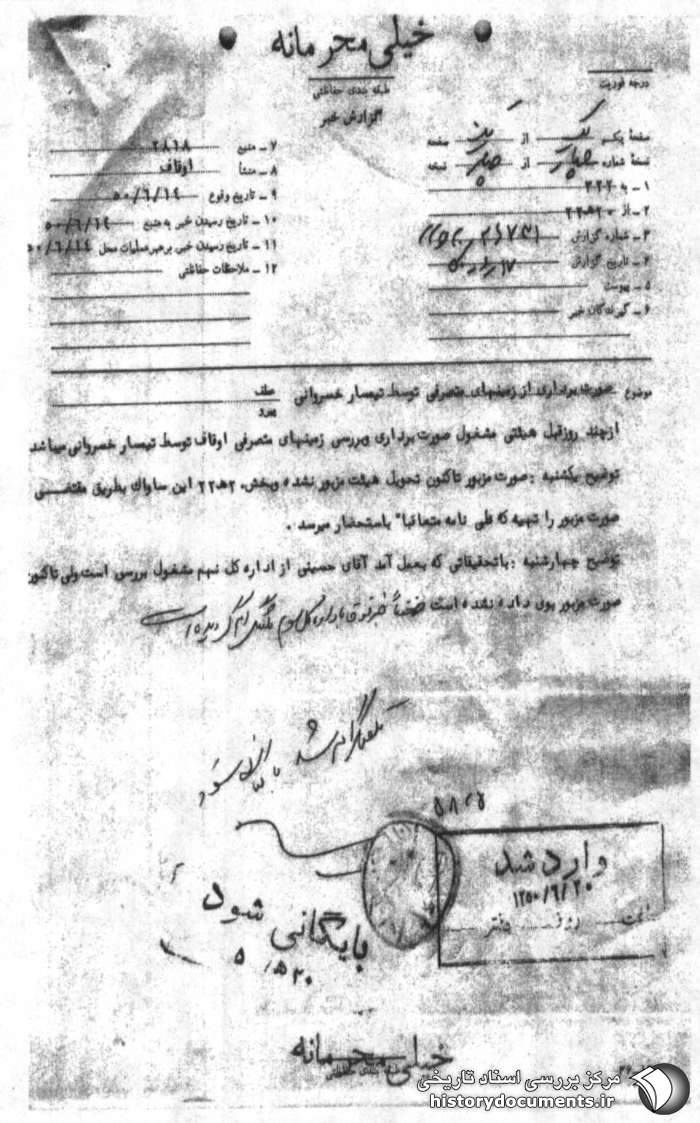 خیلی محرمانه
طبقه بندی حفاظتی
گزارش خبر
درجه فوریت
صفحه یکم از صفحه
نسخه شماره چهار از چهار نسخه
۱ـ به ۳۲۲
۲ـ از ۲۰ ه‍ ۲۲
۳ـ شماره گزارش
۴ـ تاریخ گزارش
۵ـ پیوست
۶ـ گیرندگان خبر
۷ـ منبع ۲۸۱۸
۸ـ منشأ اوقاف
۹ـ تاریخ وقوع ۵۰/۶/۱۴
۱۰ـ تاریخ رسیدن خبر به منبع ۵۰/۶/۱۴
۱۱ـ تاریخ رسیدن خبر برهبر عملیات محل ۵۰/۶/۱۴
۱۲ـ ملاحظات حفاظتی
موضوع صورت برداری از زمینهای متصرفی توسط تیمسار خسروانی
عطف
پیرو
ازچند روزقبل هیئتی مشغول صورت برداری وبررسی زمینهای متصرفی اوقاف توسط تیمسار خسروانی میباشد
توضیح یکشنبه : صورت مزبور تاکنون تحویل هیئت مزبور نشده وبخش ۲۰ه‍۲۲ این ساواک بطریق مقتضی
صورت مزبور را تهیه که طی نامه متعاقبا" باستحضار میرسد .
توضیح چهارشنبه : باتحقیقاتی که بعمل آمد آقای حسینی از اداره کل نهم مشغول بررسی است ولی تاکنون
صورت مزبور بوی داده نشده است ضمناً خبر فوق باداره کل سوم تلگرام گردیده است
تلگرام شد
وارد شد
۱۳۵۰/۶/۲۰
روز دفتر
بایگانی شود
خیلی محرمانه
طبقه بندی حفاظتی
مرکز بررسی اسناد تاریخی
historydocuments.ir